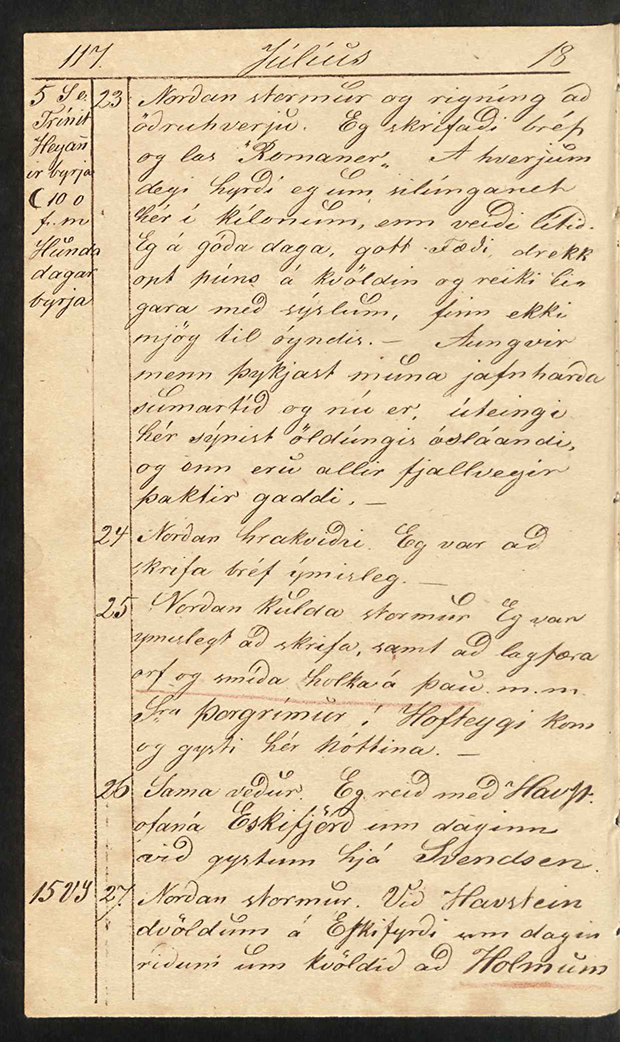 117. Júlíus 18
5 S e. Trinit
Heyan̄
ir byrja
☾ 10 o
f. m
Hunda
dagar
byrja
23 Nordan stormur og rigníng ad
ödruhverju. Eg skrifadi bréf
og las "Romaner„ A hverjum
degi hyrdi eg um silúnganet
hér í kílonum, enn veidi lítid.
Eg á góda daga, gott fædi, drekk
opt púns á kvöldin og reiki
gara med sýslum, finn ekki
mjög til óyndis. — Aungvir
menn þykjast muna jafnharda
sumartíd og nú er, úteingi
hér sýnist öldúngis ósláandi,
og enn eru allir fjallvegir
þaktir gaddi. —
24 Nordan hrakvidri. Eg var ad
skrifa bréf ýmisleg. —
25 Nordan kulda stormur Eg var
ymislegt ad skrifa, samt ad lagfæra
orf og smída hólka á þau. m. m.
Sra Þorgrímur í Hofteygi kom
og gysti hér nóttina. —
26 Sama vedur. Eg reid med Havst.
ofaná Eskifjörd um daginn
vid gystum hjá Svendsen.
15 VS 27 Nordan stormur. Vid Havstein
dvöldum á Eskifyrdi um dagin
ridum um kvöldid ad Holmum